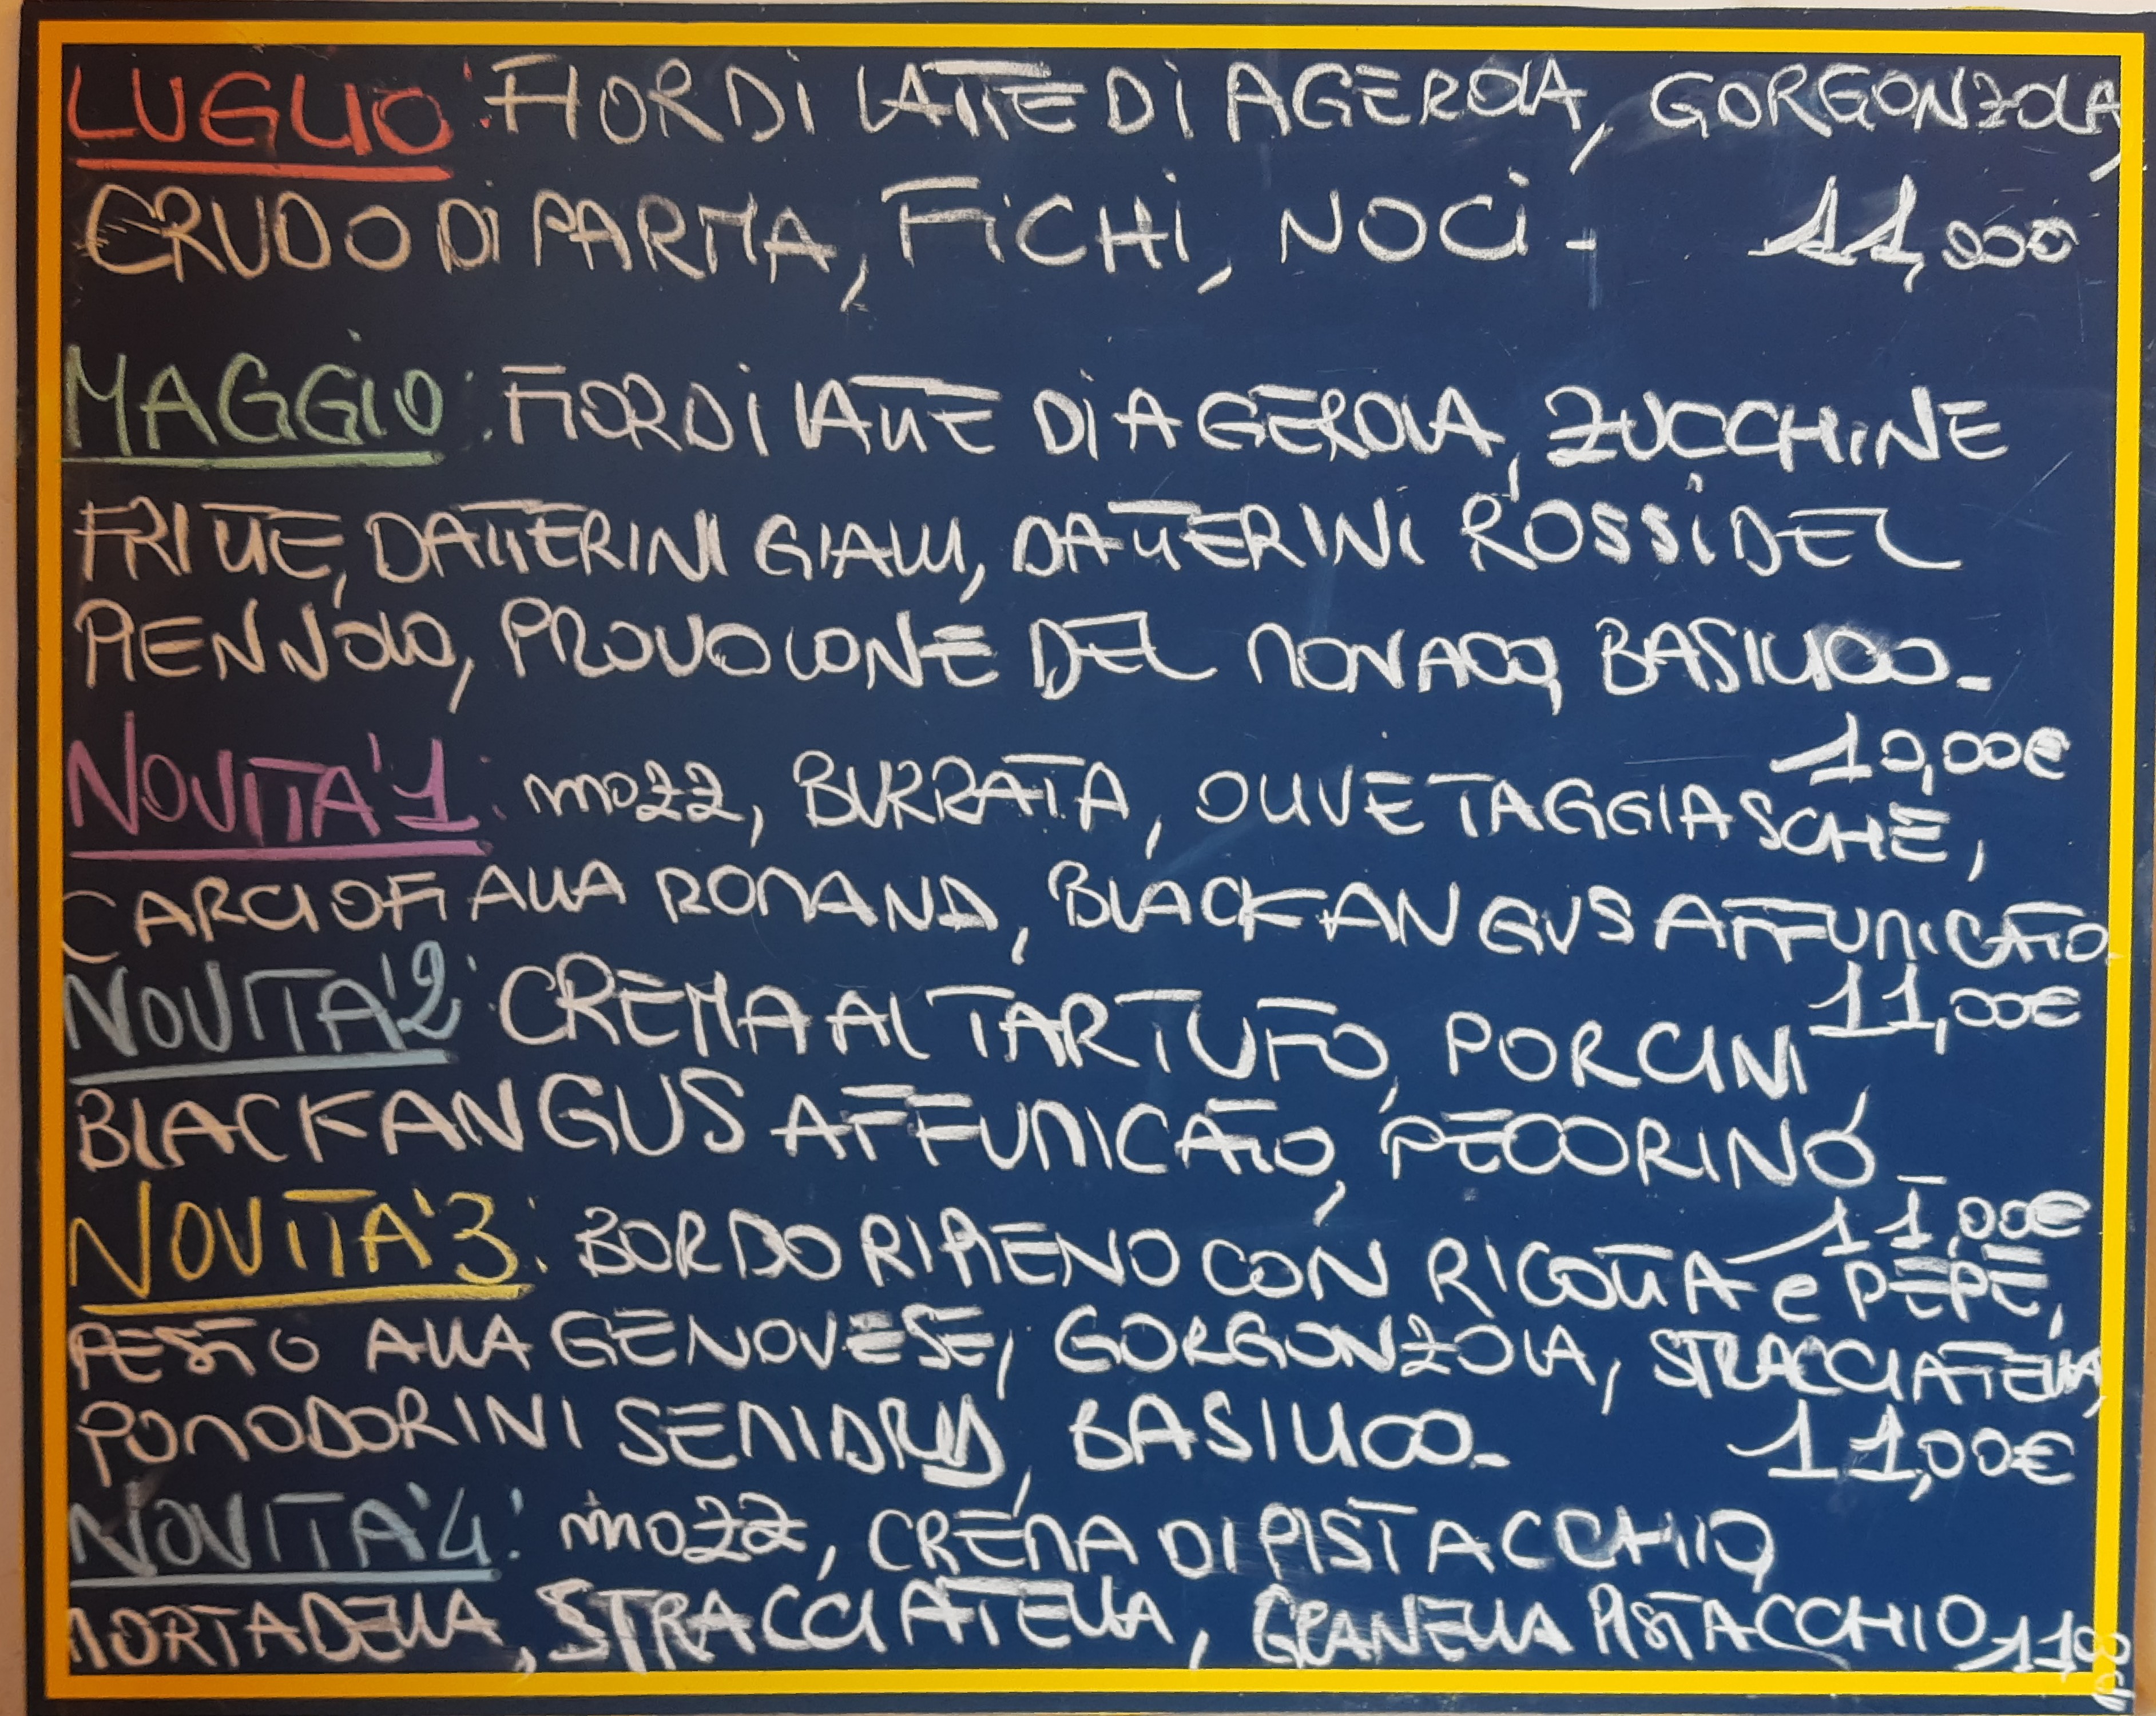 LUGLIO: FIORDILATTE DI AGEROLA, GORGONZOLA,
CRUDO DI PARMA, FICHI, NOCI - 11,000
MAGGIO: FIORDILATTE DI AGEROLA, ZUCCHINE
FRITTE, DATTERINI GIALLI, DATTERINI ROSSI DEL
PIENNOLO, PROVOLONE DEL MONACO, BASILICO-
10,00€
NOVITA'1: mozz, BURRATA, OLIVE TAGGIASCHE,
CARCIOFI ALLA ROMANA, BLACK ANGUS AFFUMICATO.
11,00€
NOVITA'2: CREMA AL TARTUFO, PORCINI,
BLACK ANGUS AFFUMICATO, PECORINO -
11,00€
NOVITA'3: BORDO RIPIENO CON RICOTTA e PEPE,
PESTO ALLA GENOVESE, GORGONZOLA, STRACCIATELLA,
POMODORINI SEMIDRY, BASILICO- 11,00€
NOVITA'4: mozz, CREMA DI PISTACCHIO,
MORTADELLA, STRACCIATELLA, GRANELLA PISTACCHIO